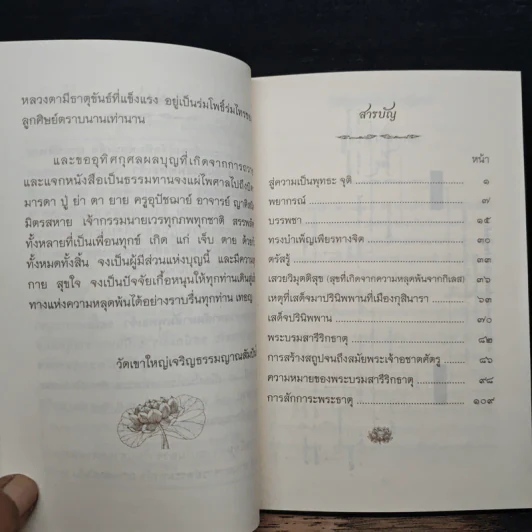 หลวงตามีธาตุขันธ์ที่แข็งแรง อยู่เป็นร่มโพธิ์ร่มไทรของ
ลูกศิษย์ตราบนานเท่านาน
และขออุทิศกุศลผลบุญที่เกิดจากการ
และแจกหนังสือเป็นธรรมทานจงแผ่ไพศาลไปถึงบิดา
มารดา ปู่ ย่า ตา ยาย ครูอุปัชฌาย์ อาจารย์ ญาติสนิท
มิตรสหาย เจ้ากรรมนายเวรทุกภพทุกชาติ
ทั้งหลายที่เป็นเพื่อนทุกข์ เกิด แก่ เจ็บ ตาย
ทั้งหมดทั้งสิ้น จงเป็นผู้มีส่วนแห่งบุญนี้
กาย สุขใจ จงเป็นปัจจัยเกื้อหนุนให้ทุกท่าน
ทางแห่งความหลุดพ้นได้อย่างราบรื่นทุกท่าน เทอญ
วัดเขาใหญ่เจริญธรรมญาณสัมปันโน
สารบัญ
หน้า
สู่ความเป็นพุทธะ จุติ ๑
พยากรณ์ ๗
บรรพชา ๑๕
ทรงบำเพ็ญเพียรทางจิต ๓๐
ตรัสรู้ ๓๓
เสวยวิมุตติสุข (สุขที่เกิดจากความหลุดพ้นจากกิเลส) ๓๖
เหตุที่เสด็จมาปรินิพพานที่เมืองกุสินารา ๖๓
เสด็จปรินิพพาน ๗๐
พระบรมสารีริกธาตุ ๘๒
การสร้างสถูปจนถึงสมัยพระเจ้าอชาตศัตรู ๘๖
ความหมายของพระบรมสารีริกธาตุ ๙๘
การสักการะพระธาตุ ๑๐๙